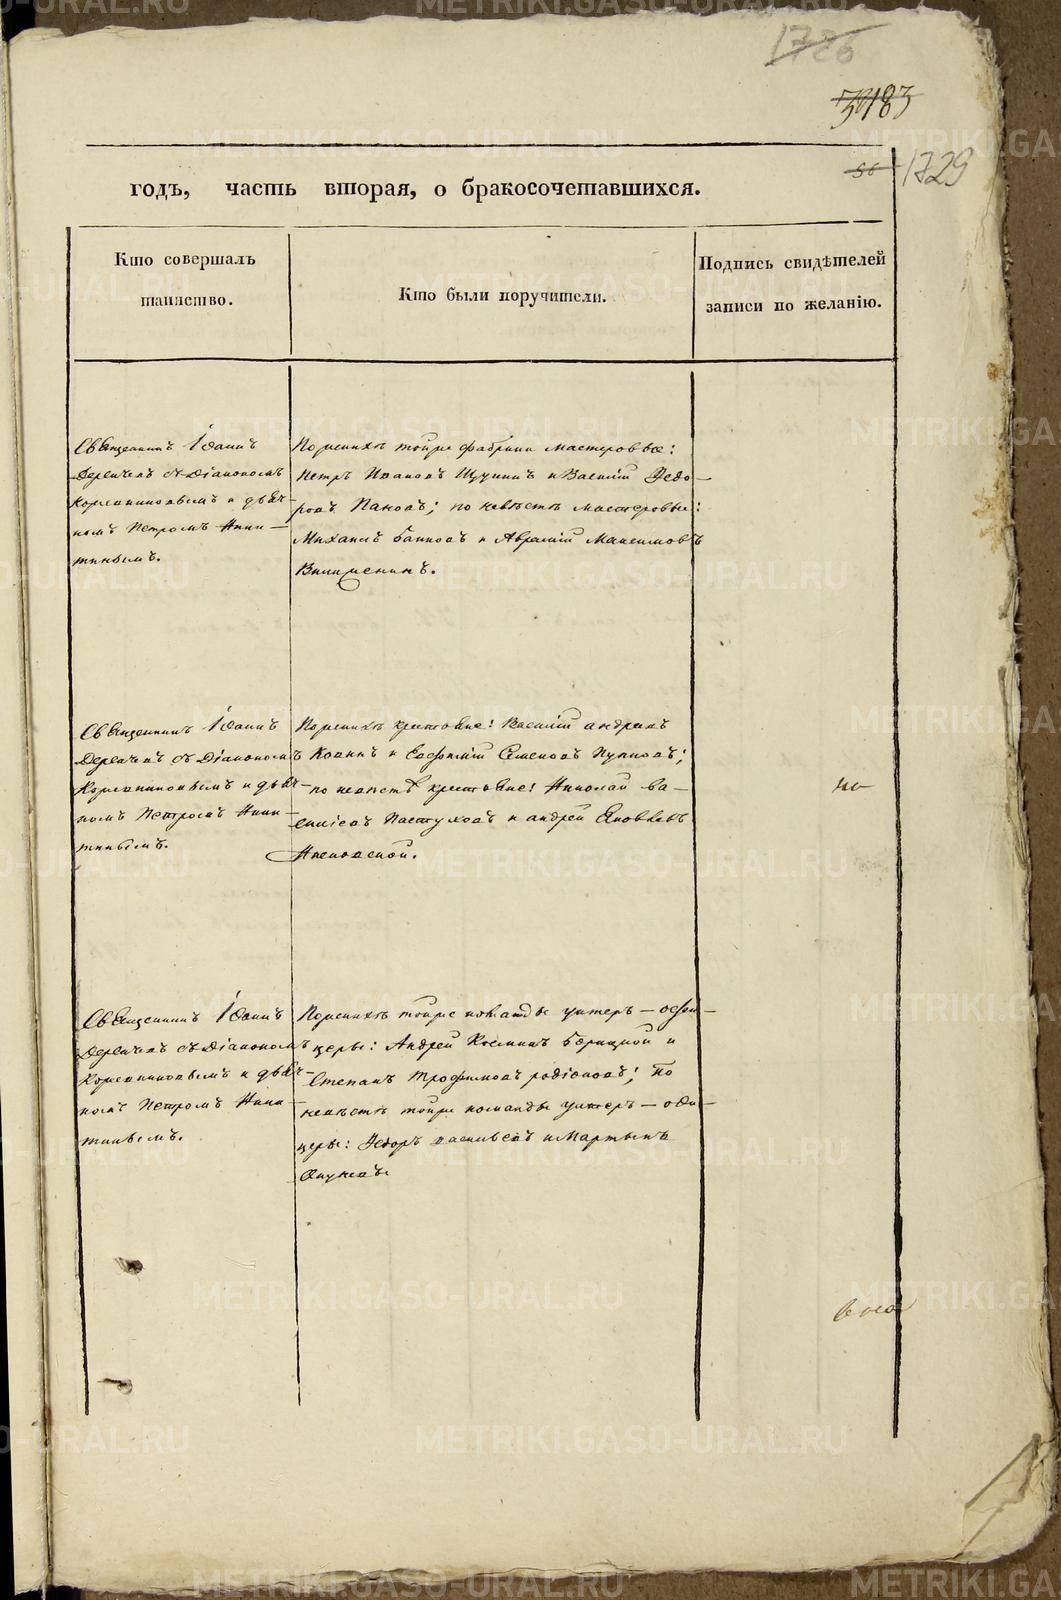 1786
183
1729
годъ, часть вторая, о бракосочетавшихся.
Кто совершалъ
таинство.
Кто были поручители.
Подпись свидѣтелей
записи по желанію.
Священникъ Іоаннъ
Деревлевъ съ Діакономъ
и дьяч-
комъ Петромъ Ники-
тинымъ.
По женихѣ тойже фабрики мастеровые:
Петръ Ивановъ Щукинъ и Василій Ѳедо-
ровъ Пановъ; по невѣстѣ мастеровые:
Михаилъ и Аврамій Максимовъ
Священникъ Іоаннъ
Деревлевъ съ Діакономъ
и дьяч-
комъ Петромъ Ники-
тинымъ.
По женихѣ крестьяне: Василій Андреевъ
и Евфимій Семеновъ Пупковъ;
по невѣстѣ крестьяне: Николай Ва-
сильевъ Пастуховъ и Андрей Яковлевъ
Священникъ Іоаннъ
Деревлевъ съ Діакономъ
и дьяч-
комъ Петромъ Ники-
тинымъ.
По женихѣ тойже команды унтеръ-офи-
церы: Андрей Козминъ и
Степанъ Трофимовъ Родіоновъ; по
невѣстѣ тойже команды унтеръ-офи-
церы: Ѳедоръ Васильевъ и Мартынъ
METRIKI.GASO-URAL.RU